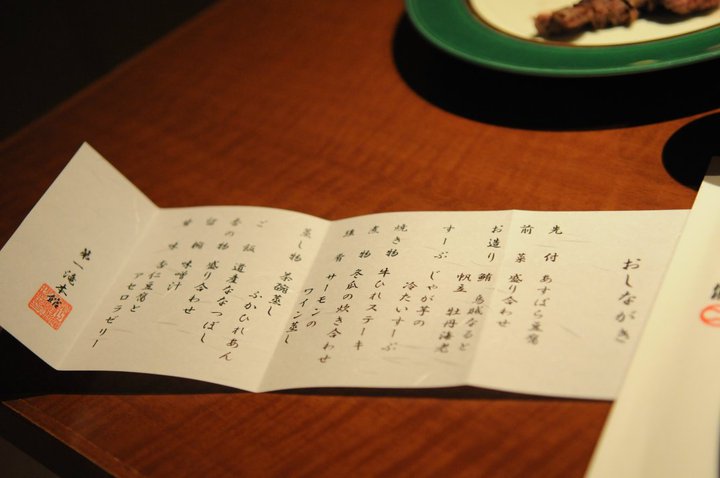 おしながき
先付 あすぱら豆腐
前菜 盛り合わせ
お造り 鮪 烏賊なると
帆立 牡丹海老
すーぷ じゃが芋の
冷たいすーぷ
焼き物 牛ひれステーキ
煮物 冬瓜の炊き合わせ
進肴 サーモンの
ワイン蒸し
蒸し物 茶碗蒸し
ふかひれあん
ご飯 道産ななつぼし
香の物 盛り合わせ
留椀 味噌汁
甘味 杏仁豆腐と
アセロラゼリー
第一滝本館